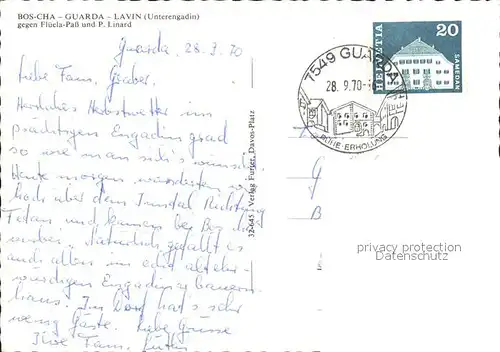 BOS-CHA – GUARDA – LAVIN (Unterengadin)
gegen Flüela-Paß und P. Linard
Guarda, 28.9.70
Liebe Fam. Graber,
Herrliches Herbstwetter im
prächtigen Engadin, grad
so wie man sich's wünscht.
Heute morgen wanderten wir
hoch über dem Inntal Richtung
und kamen bei Bos-cha
vorbei. Natürlich gefällt es
uns allen im
würdigen Engadiner bauern-
haus. Im Dorf hat's sehr
wenig Gäste. Liebe Grüsse
Ihre Fam.
32-645 Verlag Furter, Davos-Platz
7549 GUARDA
28.9.70
RUHE · ERHOLUNG
HELVETIA
20
SAMEDAN
G
B
privacy protection
Datenschutz